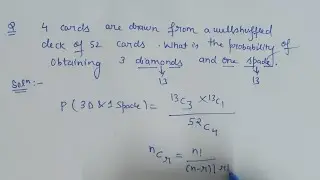 Q 4 cards are drawn from a wellshuffled
deck of 52 cards. What is the probability of
obtaining 3 diamonds and one spade.
13 13
Solⁿ:-
P(3D & 1 Spade) = ¹³C₃ × ¹³C₁
⁵²C₄
ⁿCᵣ = n!
(n-r)! r!